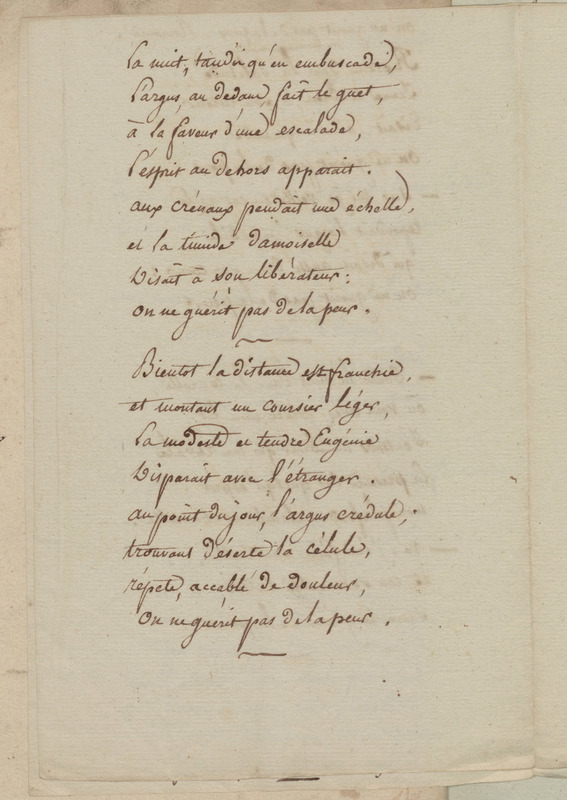 la nuit, tandis qu'en embuscade,
l'argus, au dedans, fait le guet,
à la faveur d'une escalade,
l'esprit au dehors apparait.
aux crénaux pendait une échelle,
et la timide damoiselle
disait à son libérateur:
on ne guérit pas de la peur.
Bientot la distance est franchie,
et montant un coursier léger,
la modeste et tendre Eugénie
disparait avec l'étranger.
au point du jour, l'argus crédule,
trouvant déserte la célule,
répete, accablé de douleur,
on ne guérit pas de la peur.